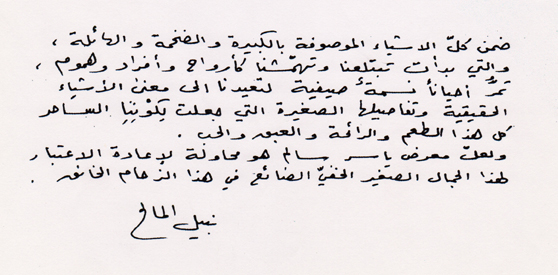 ضمن كلّ الاشياء الموصوفة بالكبيرة والضخمة والهائلة ،
والتي بدأت تبتلعنا وتهمّشنا كأرواح وأفراد وهموم ،
تمرّ أحياناً نسمة صيفية لتعيدنا الى معنى الأشياء
الحقيقية وتفاصيلها الصغيرة التي جعلت لكوننا الساحر
كل هذا الطعم والرائحة والعبق والحب .
ولعلّ معرض ياسر سالم هو محاولة لإعادة الاعتبار
لهذا الجمال الصغير الخفيّ الضائع في هذا الزحام الخانق .
نبيل المالح